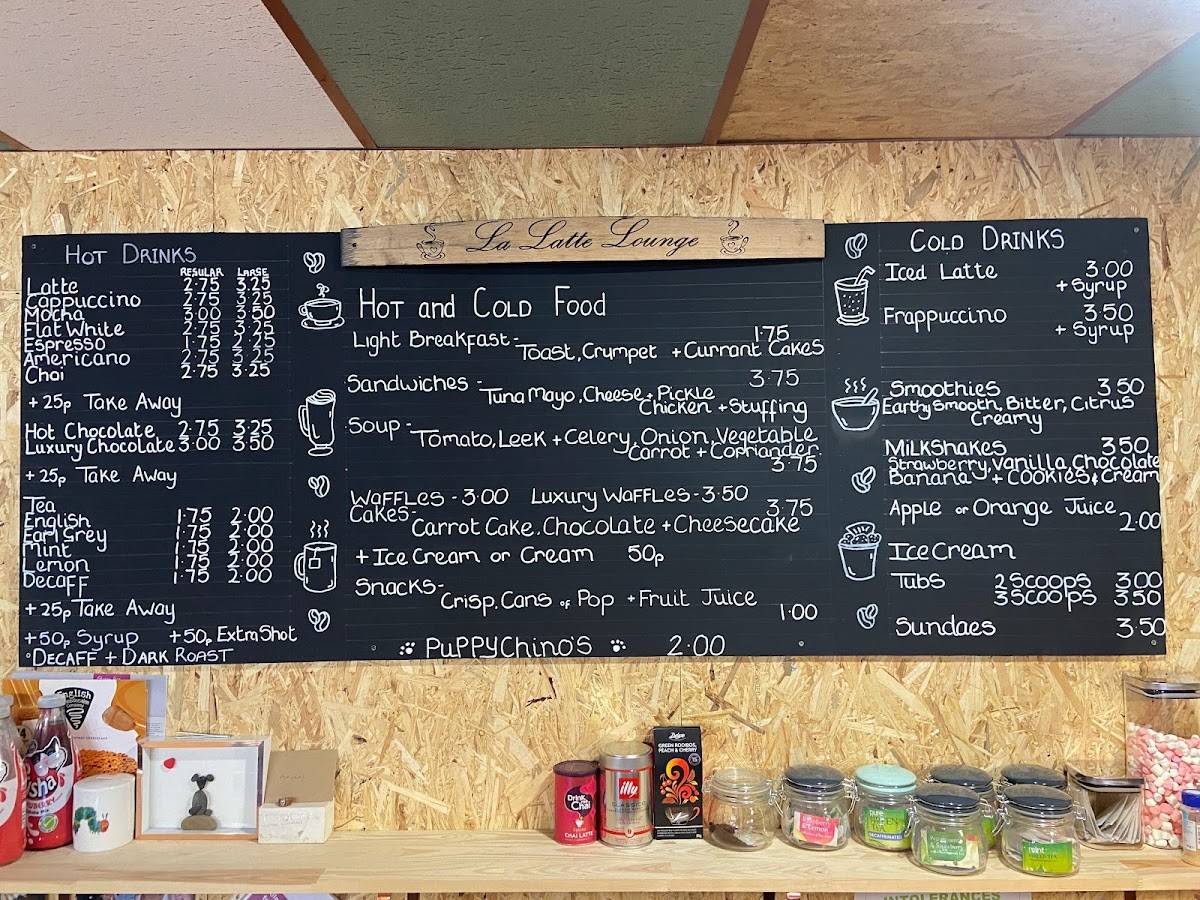 La Latte Lounge
HOT DRINKS
REGULAR LARGE
Latte 2.75 3.25
Cappuccino 2.75 3.25
Mocha 3.00 3.50
Flat White 2.75 3.25
Espresso 1.75 2.25
Americano 2.75 3.25
Chai 2.75 3.25
+25p Take Away
Hot Chocolate 2.75 3.25
Luxury Chocolate 3.00 3.50
+25p Take Away
Tea
English 1.75 2.00
Earl Grey 1.75 2.00
Mint 1.75 2.00
Lemon 1.75 2.00
Decaff 1.75 2.00
+25p Take Away
+50p Syrup +50p Extra Shot
°DECAFF + DARK ROAST
HOT and COLD Food
Light Breakfast- 1.75
Toast, Crumpet + Currant Cakes
Sandwiches - 3.75
Tuna Mayo, Cheese + Pickle
Chicken + Stuffing
Soup - Tomato, Leek + Celery, Onion, Vegetable
Carrot + Corriander.
3.75
Waffles - 3.00 Luxury Waffles - 3.50
Cakes- 3.75
Carrot Cake, Chocolate + Cheesecake
+ Ice Cream or Cream 50p
Snacks-
Crisp, Cans of Pop + Fruit Juice
1.00
PuPPYChino's 2.00
COLD DRINKS
Iced Latte 3.00
+ Syrup
Frappuccino 3.50
+ Syrup
Smoothies 3.50
Earthy Smooth, Bitter, Citrus
Creamy
Milkshakes 3.50
Strawberry, Vanilla, Chocolate
Banana + Cookies & Cream
Apple or Orange Juice
2.00
Ice Cream
Tubs 2 Scoops 3.00
3 Scoops 3.50
Sundaes 3.50
English
Drink me Chai
CHAI LATTE
illy
CLASSICO
GREEN ROOIBOS,
PEACH & CHERRY
DECAFFEINATED
mint
INTOLERANCES